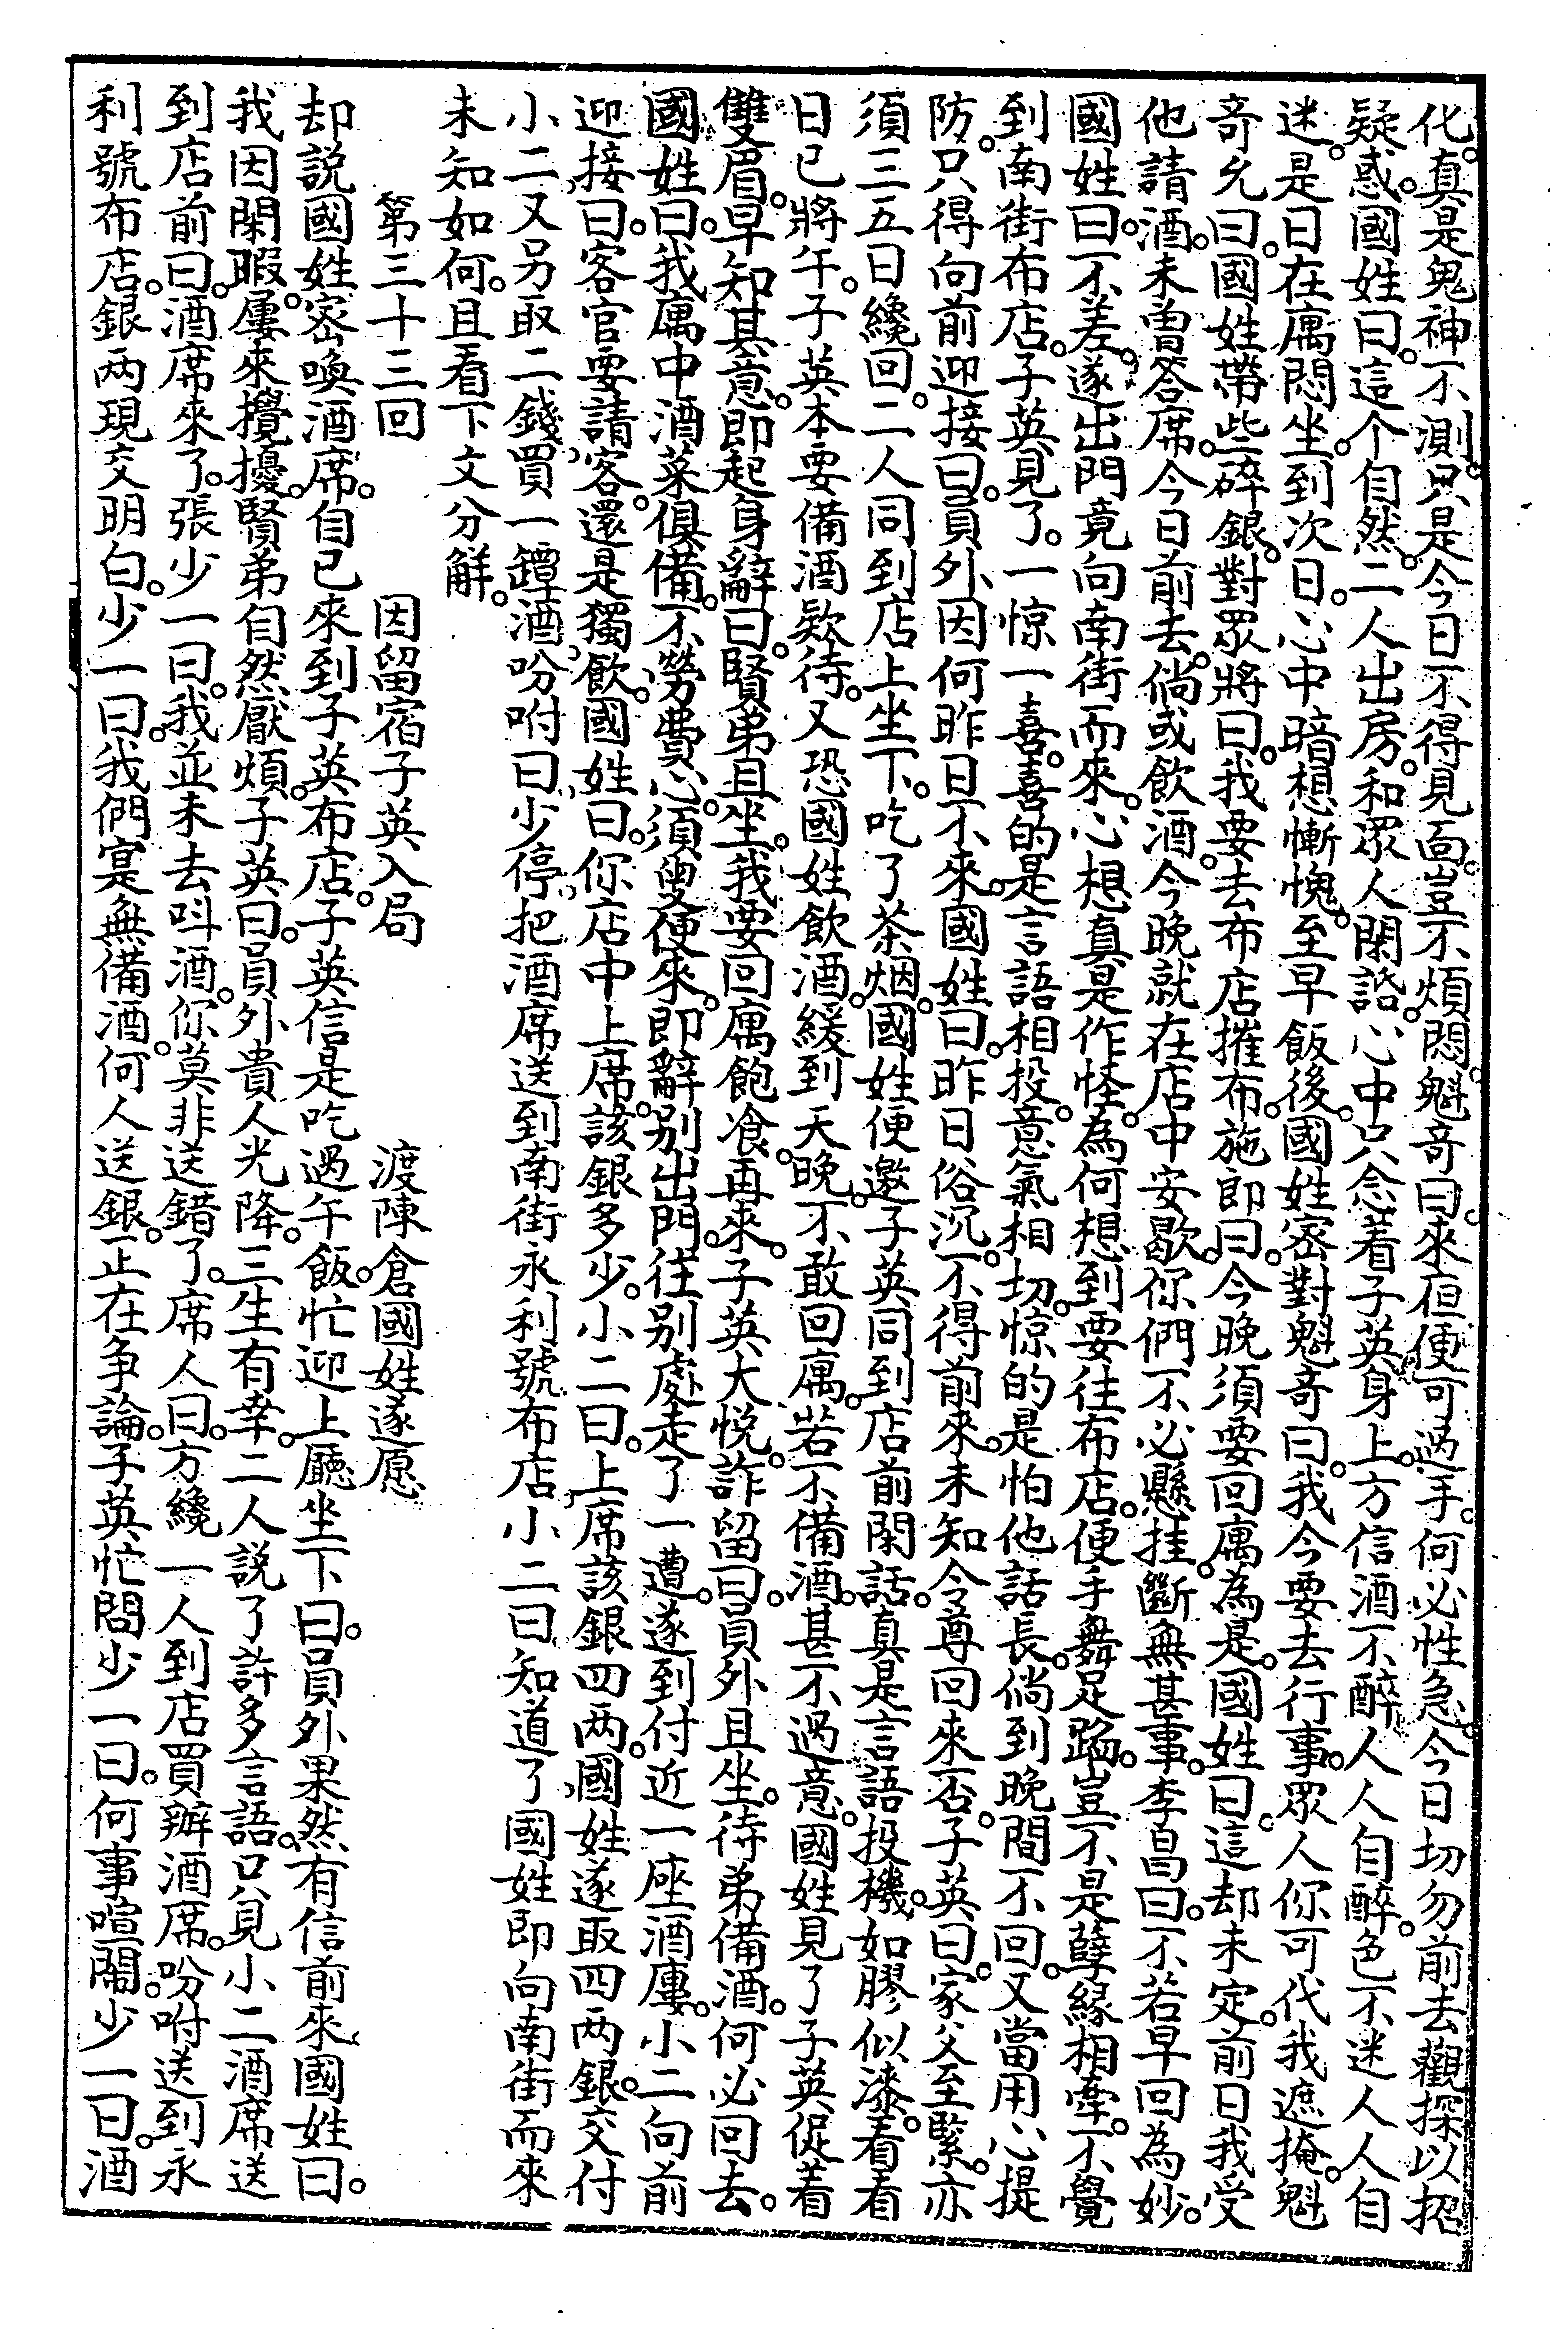 化。真是鬼神不測。只是今日不得見面。豈不煩悶。魁奇曰。來但便可過手。何必性急。今日切勿前去觀探以招
疑惑。國姓曰。這个自然。二人出房。和眾人閑談。心中只念着子英身上。方信酒不醉人人自醉。色不迷人人自
迷。是日在寓悶坐。到次日。心中暗想慚愧。至早飯後。國姓密對魁奇曰。我今要去行事。眾人你可代我遮掩。魁
奇允曰。國姓帶些碎銀。對眾將曰。我要去布店摧布。施郎曰。今晚須要回寓為是。國姓曰。這却未定。前日我受
他請酒。未曾答席。今日前去。倘或飲酒。今晚就在店中安歇。你們不必懸挂。斷無甚事。李昌曰。不若早回為妙。
國姓曰。不差。遂出門竟向南街而來。心想真是作怪。為何想到要往布店。便手舞足蹈。豈不是孽緣相牽。不覺
到南街布店。子英見了。一惊一喜。喜的是言語相投。意氣相切。惊的是怕他話長。倘到晚間不回。又當用心提
防。只得向前迎接曰。員外因何昨日不來。國姓曰。昨日俗沉。不得前來。未知令尊回來否。子英曰。家父至緊。亦
須三五日纔回。二人同到店上坐下。吃了茶烟。國姓便邀子英同到店前閑話。真是言語投機。如膠似漆。看看
日已將午。子英本要備酒欵待。又恐國姓飲酒。緩到天晚。不敢回寓。若不備酒。甚不過意。國姓見了子英促着
雙眉。早知其意。即起身辭曰。賢弟且坐。我要回寓飽飡。再來。子英大悅。詐留曰。員外且坐。待弟備酒。何必回去。
國姓曰。我寓中酒菜俱備。不勞費心。須臾便來。即辭别出門。往别處走了一遭。遂到付近一座酒廔。小二向前
迎接曰。客官要請客。還是獨飲。國姓曰。你店中上席。該銀多少。小二曰。上席該銀四两。國姓遂取四两銀。交付
小二又另取二錢。買一罈酒。吩咐曰。少停。把酒席送到南街永利號布店。小二曰知道了。國姓即向南街而來
未知如何。且看下文分觧。
第三十三回　　因留宿子英入局　　渡陳倉國姓遂愿
却説國姓密喚酒席。自已來到子英布店。子英信是吃過午飯。忙迎上廳坐下曰。員外果然有信前來。國姓曰。
我因閑暇。屢來攪擾。賢弟自然厭煩。子英曰。員外貴人光降。三生有幸。二人説了許多言語。只見小二酒席送
到店前曰。酒席來了。張少一曰。我並未去呌酒。你莫非送錯了。席人曰。方纔一人到店買辦酒席。吩咐送到永
利號布店。銀两現交明白。少一曰。我們寔無備酒。何人送銀。正在争論。子英忙問少一曰。何事喧鬧。少一曰。酒